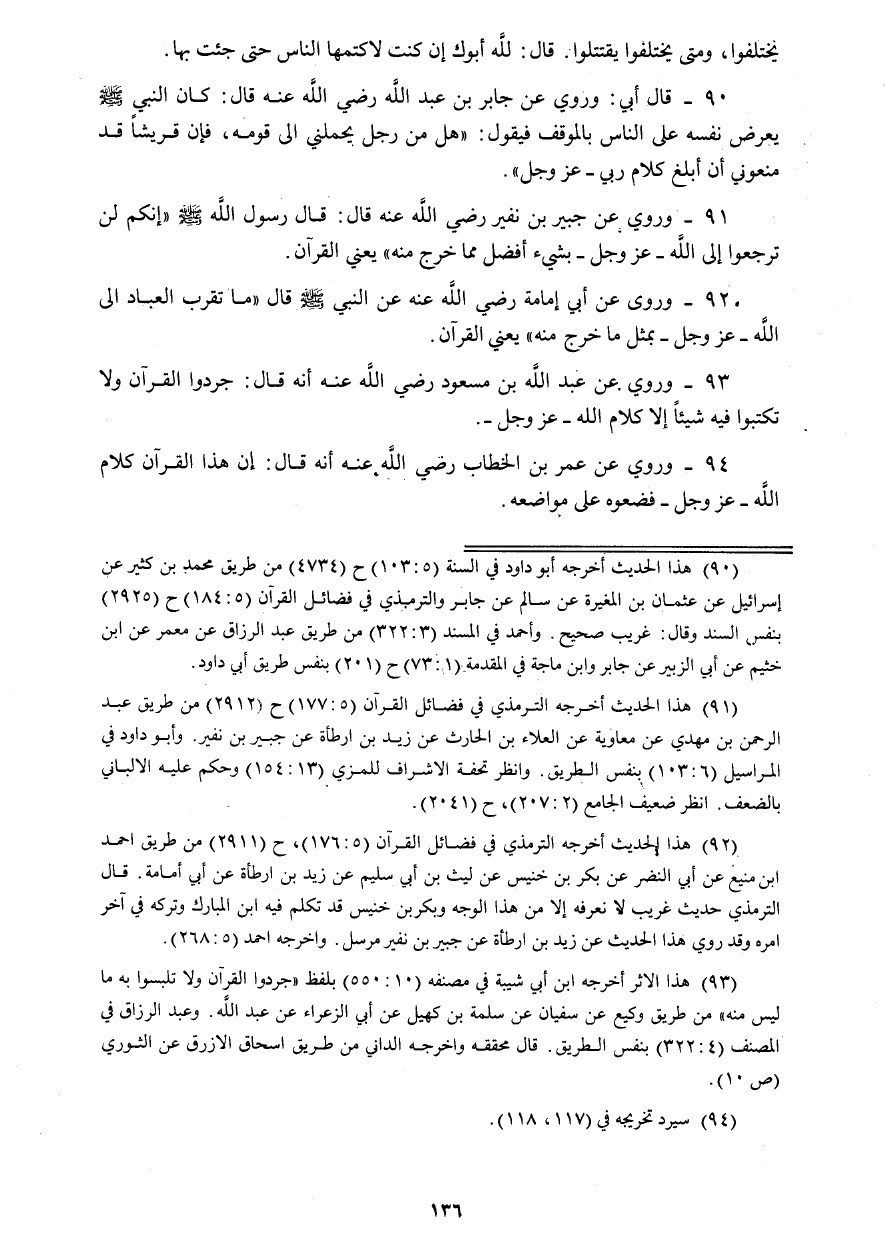 يختلفوا، ومتى يختلفوا يقتتلوا. قال: للَّه أبوك إن كنت لاكتمها الناس حتى جئت بها.
٩٠ - قال أبي: وروي عن جابر بن عبد اللَّه رضي اللَّه عنه قال: كان النبي ﷺ
يعرض نفسه على الناس بالموقف فيقول: «هل من رجل يحملني الى قومه، فإن قريشاً قد
منعوني أن أبلغ كلام ربي - عز وجل».
٩١ - وروي عن جبير بن نفير رضي اللَّه عنه قال: قال رسول اللَّه ﷺ «إنكم لن
ترجعوا إلى اللَّه - عز وجل - بشيء أفضل مما خرج منه» يعني القرآن.
٩٢ - وروى عن أبي إمامة رضي اللَّه عنه عن النبي ﷺ قال «ما تقرب العباد الى
اللَّه - عز وجل - بمثل ما خرج منه» يعني القرآن.
٩٣ - وروي عن عبد اللَّه بن مسعود رضي اللَّه عنه أنه قال: جردوا القرآن ولا
تكتبوا فيه شيئاً إلا كلام الله - عز وجل -.
٩٤ - وروي عن عمر بن الخطاب رضي اللَّه عنه أنه قال: إن هذا القرآن كلام
اللَّه - عز وجل - فضعوه على مواضعه.
(٩٠) هذا الحديث أخرجه أبو داود في السنة (٥: ١٠٣) ح (٤٧٣٤) من طريق محمد بن كثير عن
إسرائيل عن عثمان بن المغيرة عن سالم عن جابر والترمذي في فضائل القرآن (٥: ١٨٤) ح (٢٩٢٥)
بنفس السند وقال: غريب صحيح. وأحمد في المسند (٣: ٣٢٢) من طريق عبد الرزاق عن معمر عن ابن
خثيم عن أبي الزبير عن جابر وابن ماجة في المقدمة (١: ٧٣) ح (٢٠١) بنفس طريق أبي داود.
(٩١) هذا الحديث أخرجه الترمذي في فضائل القرآن (٥: ١٧٧) ح (٢٩١٢) من طريق عبد
الرحمن بن مهدي عن معاوية عن العلاء بن الحارث عن زيد بن ارطأة عن جبير بن نفير. وأبو داود في
المراسيل (٦: ١٠٣) بنفس الطريق. وانظر تحفة الاشراف للمزي (١٣: ١٥٤) وحكم عليه الالباني
بالضعف. انظر ضعيف الجامع (٢: ٢٠٧)، ح (٢٠٤١).
(٩٢) هذا الحديث أخرجه الترمذي في فضائل القرآن (٥: ١٧٦)، ح (٢٩١١) من طريق احمد
ابن منيع عن أبي النضر عن بكر بن خنيس عن ليث بن أبي سليم عن زيد بن ارطأة عن أبي أمامة. قال
الترمذي حديث غريب لا نعرفه إلا من هذا الوجه وبكربن خنيس قد تكلم فيه ابن المبارك وتركه في آخر
امره وقد روي هذا الحديث عن زيد بن ارطأة عن جبير بن نفير مرسل. واخرجه احمد (٥: ٢٦٨).
(٩٣) هذا الاثر أخرجه ابن أبي شيبة في مصنفه (١٠: ٥٥٠) بلفظ «جردوا القرآن ولا تلبسوا به ما
ليس منه» من طريق وكيع عن سفيان عن سلمة بن كهيل عن أبي الزعراء عن عبد اللَّه. وعبد الرزاق في
المصنف (٤: ٣٢٢) بنفس الطريق. قال محققه واخرجه الداني من طريق اسحاق الازرق عن الثوري
(ص ١٠).
(٩٤) سيرد تخريجه في (١١٧، ١١٨).
١٣٦